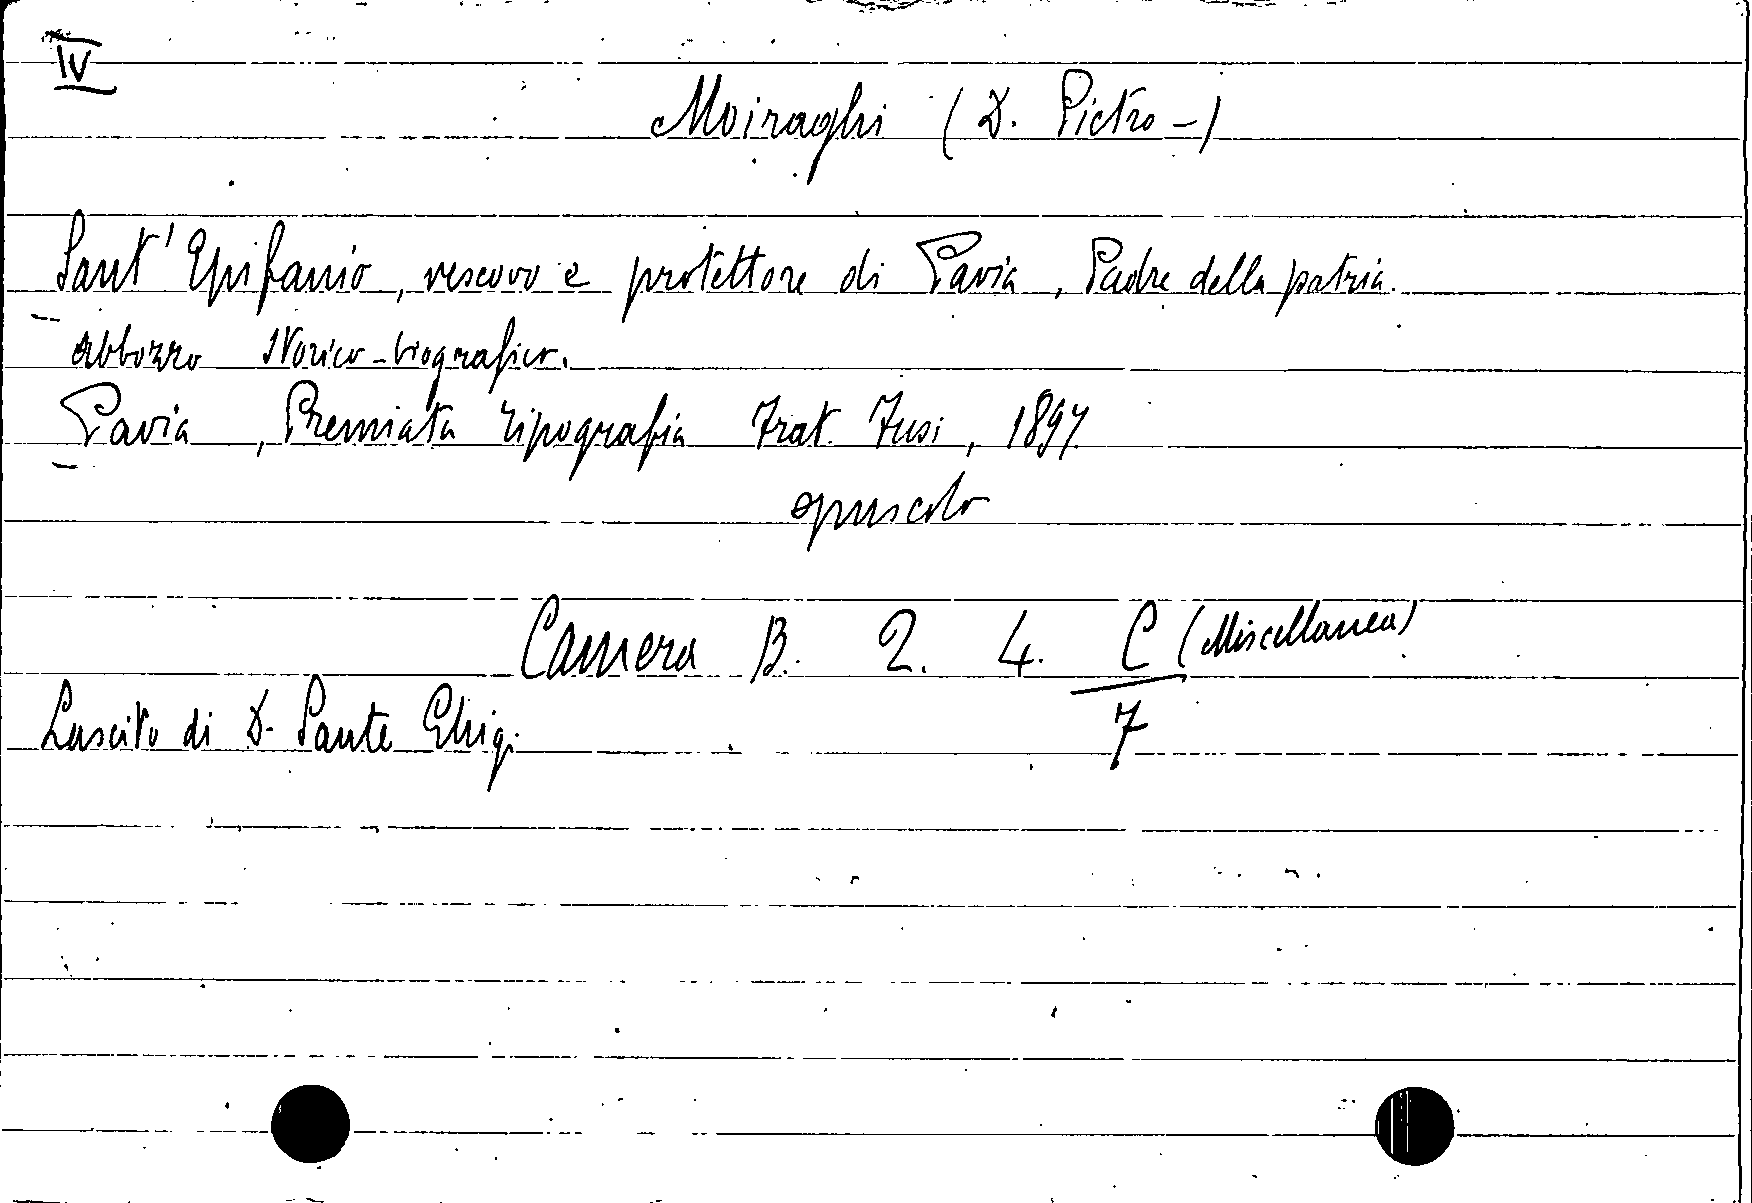 IV
Moiraghi (D. Pietro -)
Sant' Epifanio, vescovo e protettore di Pavia, Padre della patria.
Abbozzo storico-biografico.
Pavia, Premiata tipografia Frat. Fusi, 1897
opuscolo
Camera B. 2. 4. C (Miscellanea)
7
Lascito di D. Sante Ghigi